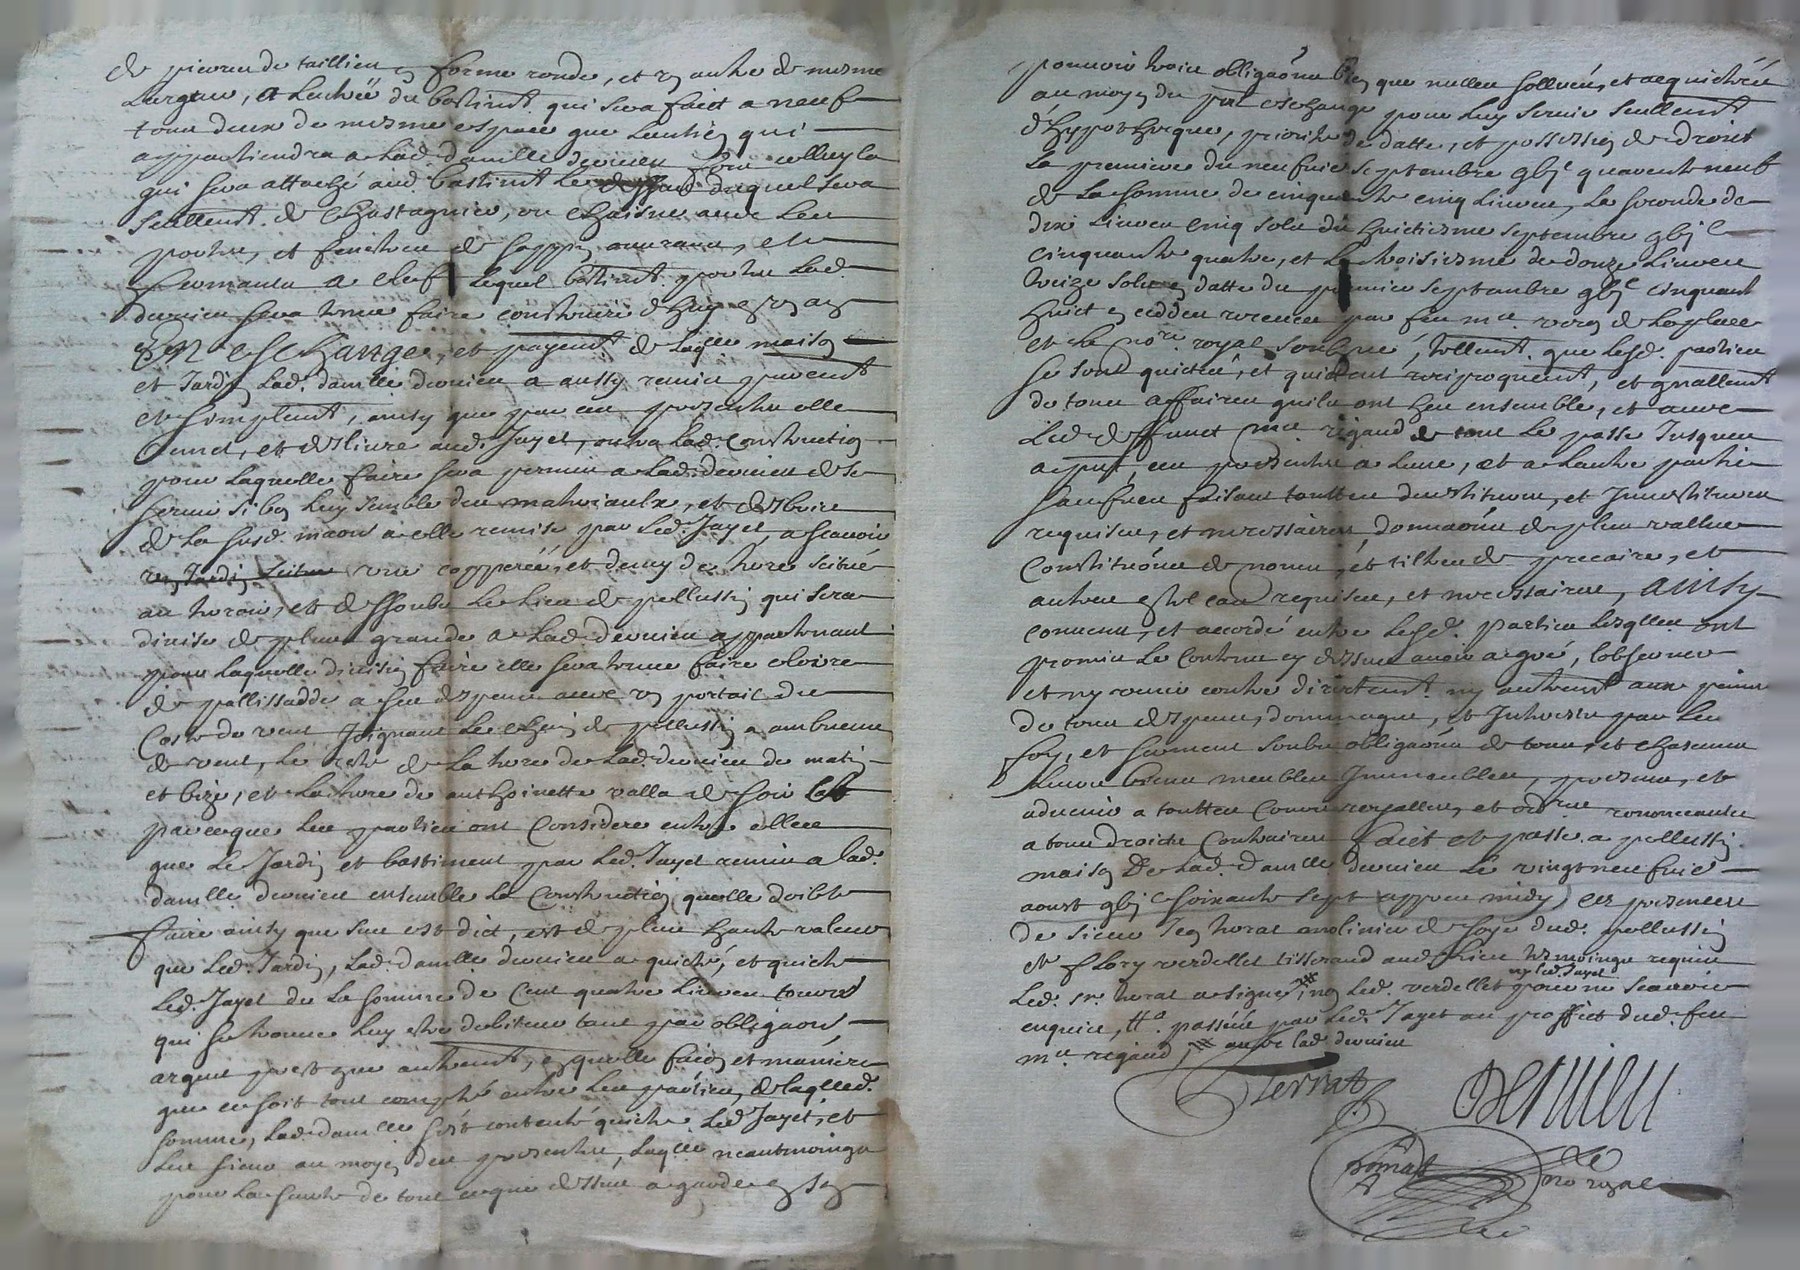 de pierre de taillien en forme ronde, et un autre de mesme
Largeur, et hauteur du bastiment qui sera faict a neuf
tous deux de mesme espace que Lentien qui
appartiendra a lad. damlle dernieu pour celluy la
qui sera attaché aud. bastiment Le duquel sera
seullemt. de chastagnier, ou chaisne avec les
portes, et fenetres de sappin ouvrants, et
fermants a clef Lequel bastimt. porte Lad.
dernieu sera tenue faire construire d'huy en un an
En eschange, et payemt de Laqlle maison
et Jardin Lad. damlle dernieu a aussy remis purement
et simplemt, ainsy que par ces presentes elle
remet, et deslivre aud. Jayet, outre Lad. Construction
pour laquelle faire sera permis a Lad. dernieu de se
servir si bon luy semble des matheriaulx, et desbris
de la susd. maison a elle remise par Led. Jayet, a scavoir
une copperée, et demy de terre scitué
au teroir, et dessoubs Le lieu de pellussin qui sera
divisé de plus grande a Lad. dernieu appartenant
pour laquelle division faire elle sera tenue faire cloire
de pallissadde a ses despens avec un portail du
Costé de vent Joignant Le chemin de pellussin a
de vent, Le reste de La terre de Lad. dernieu de matin
et bize, et La terre de anthoinette valla de soir
parceque les parties ont Consideré entre elles
que Le Jardin et bastiment par Led. Jayet remis a lad.
damlle dernieu ensemble La Construction quelle doibt
faire ainsy que sus est dict, est de plus haute valeur
que Led. Jardin, Lad. damlle dernieu a quicté, et quicte
Led. Jayet de La somme de Cent quatre Livres tournois
qui se treuve luy estre debiteur tant par obligaons
argent presté que autremt, en quelle facon et maniere
que ce soit tout compté entre Les parties, de laqlle
somme, Lad. damlle s'est contenté quicte Led. Jayet, et
Les siens au moyen des presentes, Laqlle neantmoings
pour La seurté de tout ce que dessus a gardé en son
pouvoir trois obligaons bien que nulles sollues, et acquictées
au moyen du pnt eschange pour luy servir seullemt
d'hypotheque, priorité de datte, et possession de droit
La premiere du neufvie septembre gbjc quarente neuf
de La somme de cinquante cinq Livres, La seconde de
dix Livres cinq sols du huictiesme septembre gbjc
cinquante quatre, et La troisiesme de douze Livres
treize sols en datte du premier septembre gbjc cinquante
huict receues par feu me de Laplace
et Le nore royal soubné, tellemt. que Lesd. parties
se sont quictés, et quictent reciproquemt, et gnallemt
de tous affaires quils ont heu ensemble, et avec
Led. deffunct me rigaud de tout Le passé Jusques
a pnt, ces presentes a Lune, et a Lautre partie
faisant touttes devestitures, et Jnvestitures
requises, et necessaires, donnaons de plus vallue
Constitutions de noms, et tiltres de precaire, et
autres requises, et necessaires, ainsy
convenu, et accordé entre Lesd. parties Lesqlles ont
promis Le Contenu cy dessus avoir agreé, l'observer
et ny venir contre directemt. ny autremt aux peines
de tous despens, dommages, et Jnterests par Leur
foy, et serment soubs obligaons de tous, et chascuns
Leurs biens meubles Jmmeubles, presens, et
advenir a touttes Cours royalles, et ordres renonceants
a tous droicts Contraires faict et passé a pellussin
maison De Lad. damlle dernieu Le vingt neufvie
aoust gbjc soixante sept appres midy es presences
de sieur Jean terrat molinier de soye dud. pellussin
et flory verdellet tisserand aud. Lieu tesmoings requis
ny led. Jayet
Led. sr. terrat a signé, non Led. verdellet pour ne scavoir
enquis, passée par Led. Jayet au proffict dud. feu
me rigaud, avec lad. dernieu
Terrat
Dernieu
no royal